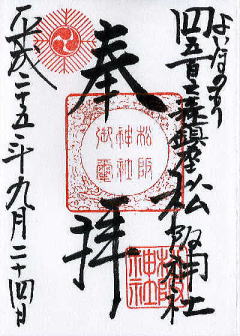 よいほのもり
四五百之森鎮座 松阪神社
奉拝
松阪
神社
御霊
松阪
神社
平成二十五年九月二十四日